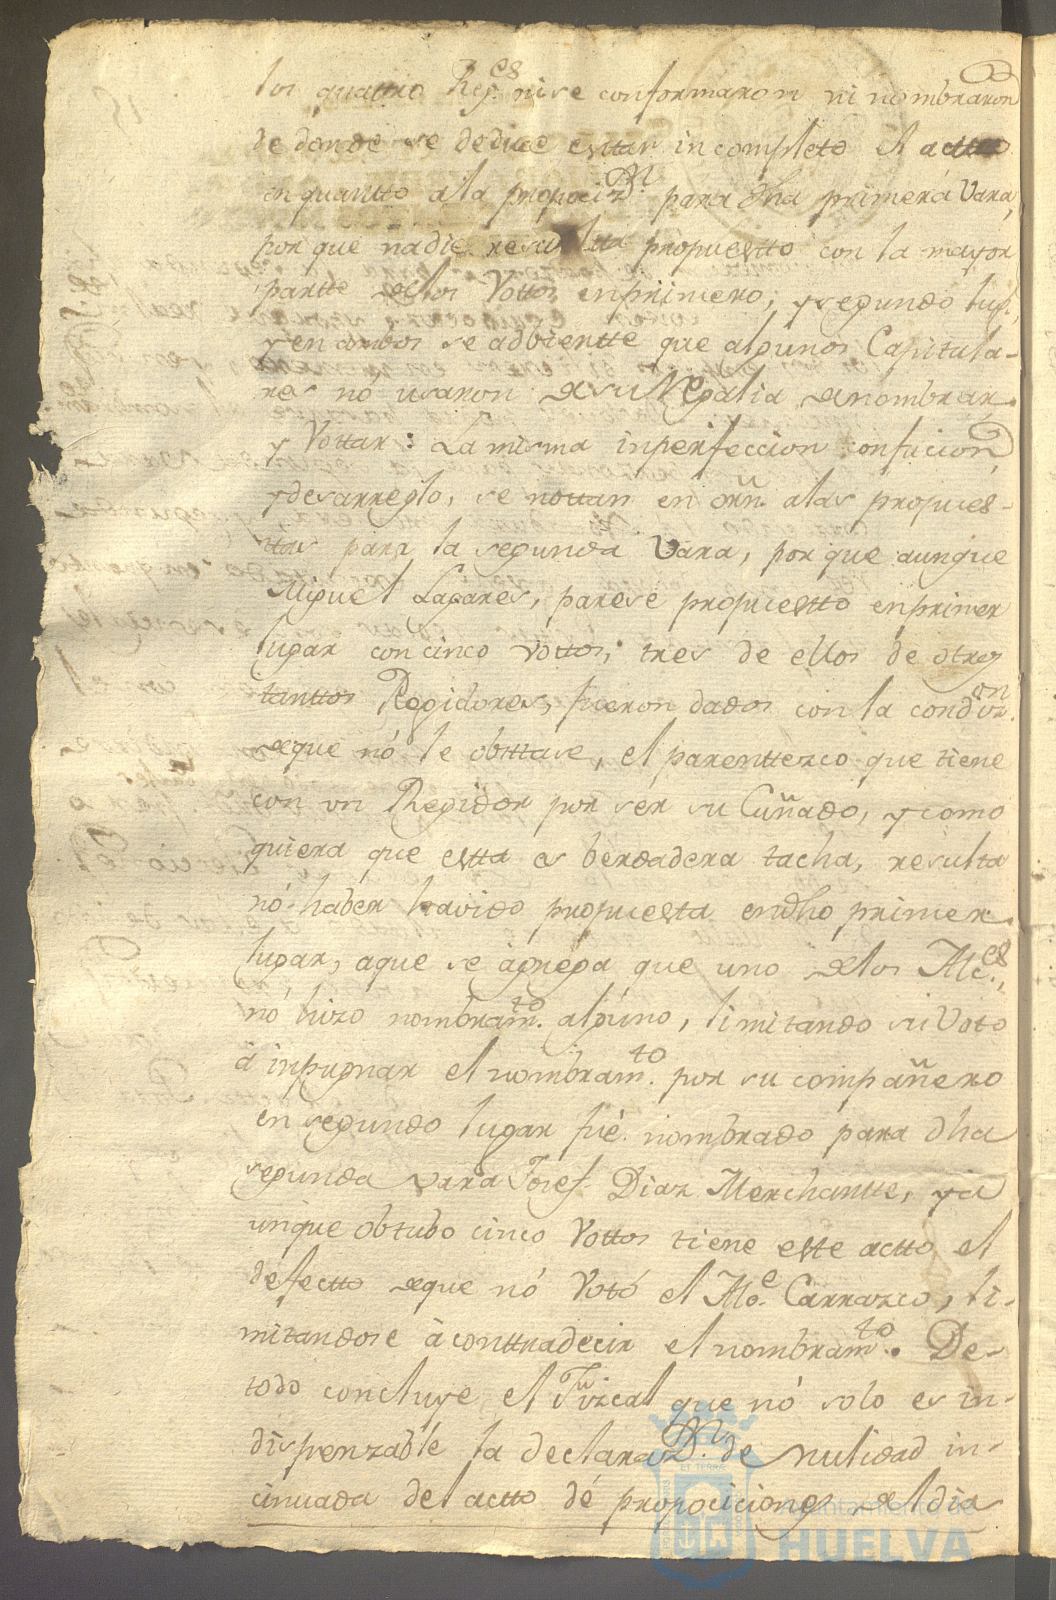 los quattro Reg.es ni se conformaron ni nombraron
de donde se deduce estar incompleto el actto
en quantto ala proposiz.on para dha primera Vara,
por que nadie resultta propuestto con la mayor
partte delos Vottos enprimero, y segundo lug.r,
y en ambos se adbiertte que algunos Capitula-
res nó usaron desu Regalia denombrar
y Vottar: La misma inperfeccion confucion
y desarreglo, se nottan en orn. alas propues-
ttas para la segunda Vara, por que aunque
Miguel Lagares, parese propuestto enprimer
lugar con cinco vottos, tres de ellos de otros
tanttos Regidores, fueron dados con la condiz.on
deque nó le obsttase, el parenttezco que tiene
con un Regidor por ser su Cuñado, y como
quiera que estta es berdadera tacha, resulta
nó haber havido propuesta endho primer
lugar, aque se agrega que uno delos Alc.es,
nó hizo nombram.to alguno, limitando su Voto
à inpugnar el nombram.to por su compañero
en segundo lugar fué nombrado para dha
segunda vara Josef Diaz Merchantte, y a
unque obtubo cinco Vottos tiene este actto el
defectto deque nó Votó el Alc.e Carrazco, li-
mitandose à conttradecir el nombram.to. De-
todo concluye el Fiscal que nó solo es in-
dispenzable la declaraz.on de nulidad in-
cinuada del actto de proposiciones del dia
Ayuntamiento de
HUELVA